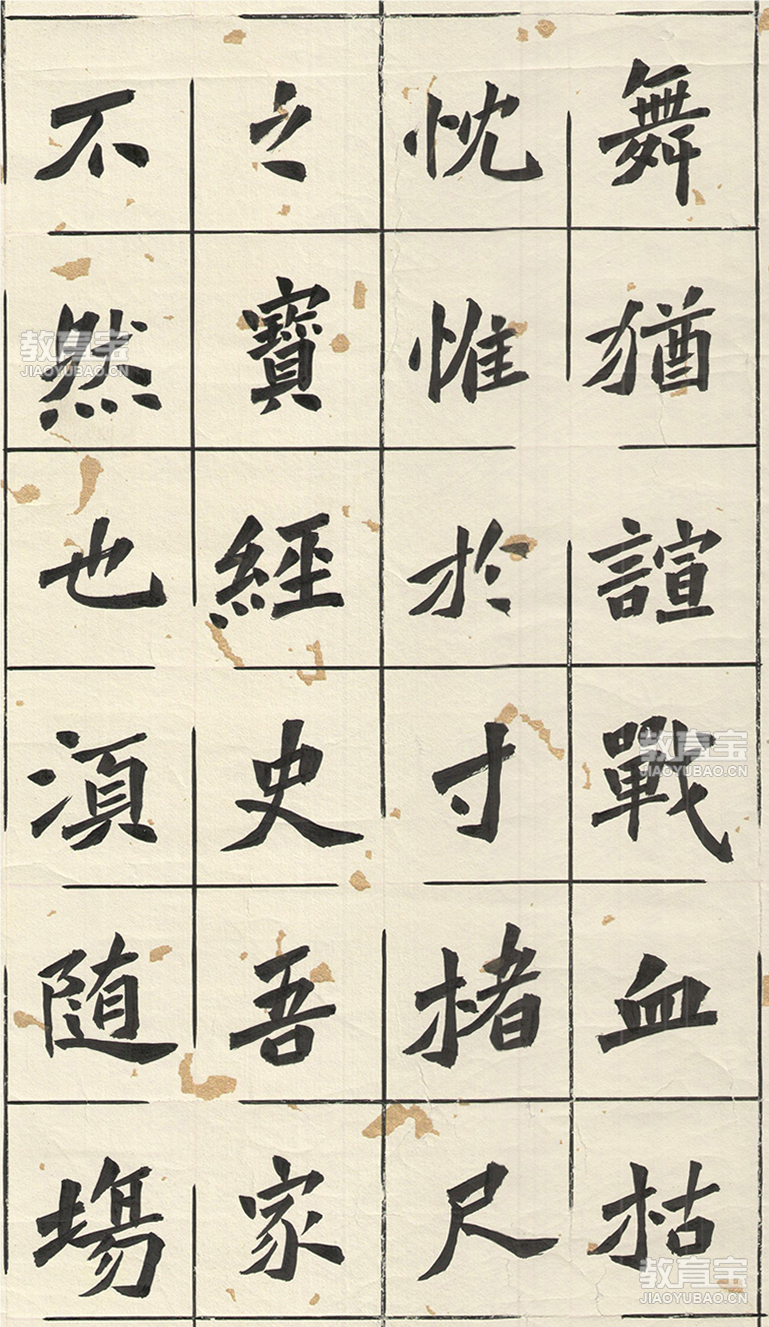 舞猶諠戰血枯
忱惟於寸楮尺
之寶經史吾家
不然也湏随場
教育宝
JIAOYUBAO.CN
教育宝
JIAOYUBAO.CN
教育宝
JIAOYUBAO.CN